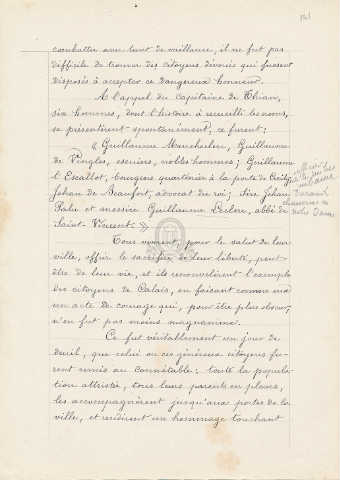 combattre avec tant de vaillance, il ne fut pas
difficile de trouver des citoyens dévoués qui fussent
disposés à accepter ce dangereux honneur.
A l'appel du capitaine de Thian,
six hommes, dont l'histoire a recueilli les noms,
se présentèrent spontanément, ce furent:
« Guillaume Marcheclen, Guillaume
de Vengles, escuiers, nobles hommes; Guillaume
l'Escallot, bourgeois quartenier à la porte de
Jehan de Beaufort, advocat du roi; Sire Jehan
Palu et messire Guillaume Leclerc, abbé de
Saint-Vincent. »
Tous vinrent, pour le salut de leur
ville, offrir le sacrifice de leur liberté, peut-
être de leur vie, et ils renouvelèrent l'exemple
des citoyens de Calais, en faisant comme eux
un acte de courage qui, pour être plus obscur,
n'en fut pas moins magnanime.
Ce fut véritablement un jour de
deuil, que celui où ces généreux citoyens fu-
rent remis au Connétable: toute la popula-
tion attristée, tous leurs parents en pleurs,
les accompagnèrent jusqu'aux portes de la
ville, et rendirent un hommage touchant